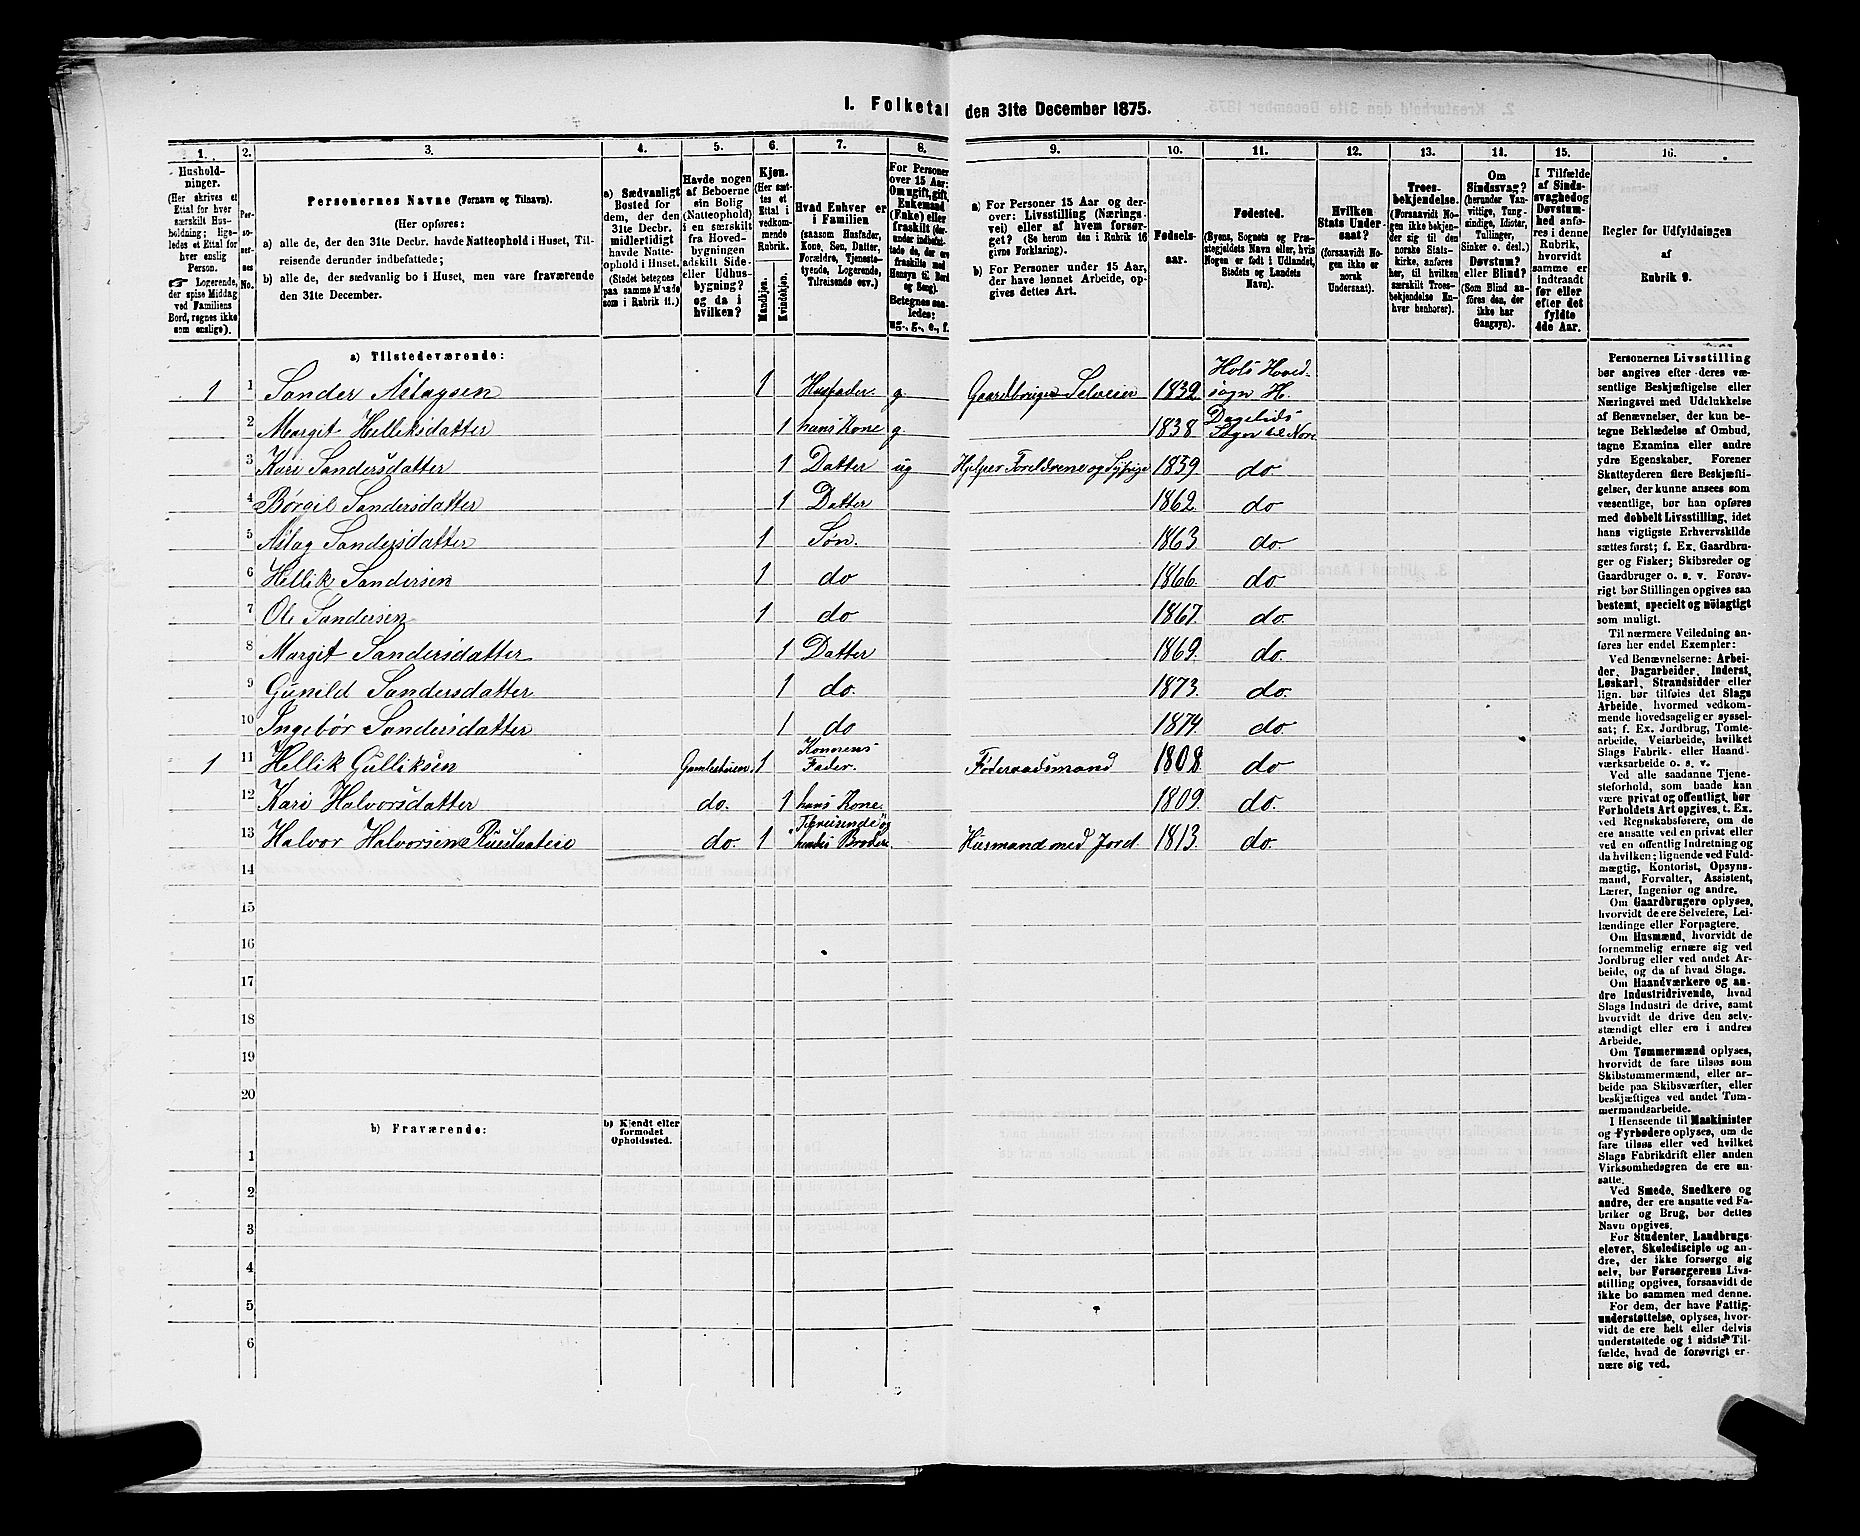 I. Folketal den 31te December 1875.
1. 2. 3. 4. 5. 6. 7. 8. 9. 10. 11. 12. 13. 14. 15. 16.
Hushold-
ninger.
(Her skrives et
Ettal for hver
særskilt Hus-
holdning; lige-
ledes et Ettal for
hver enslig
Person.
☛ Logerende,
der spise Middag
ved Familiens
Bord, regnes ikke
som enslige).
Per-
so-
ner-
nes
No.
Personernes Navne (Fornavn og Tilnavn).
(Her opføres:
a) alle de, der den 31te Decbr. havde Natteophold i Huset, Til-
reisende derunder indbefattede;
b) alle de, der sædvanlig bo i Huset, men vare fraværende
den 31te December.
a) Sædvanligt
Bosted for
dem, der den
31te Decbr.
midlertidigt
havde Natte-
ophold i Huset.
(Stedet betegnes
paa samme Maade
som i Rubrik 11.)
Havde nogen
af Beboerne
sin Bolig
(Natteophold)
i en særskilt
fra Hoved-
bygningen
adskilt Side-
eller Udhus-
bygning?
og da i
hvilken?
Kjøn.
(Her sæt-
tes et
Ettal i
vedkom-
mende
Rubrik.
Mandkjøn.
Kvindekjøn.
Hvad Enhver er
i Familien
(saasom Husfader,
Kone, Søn, Datter,
Forældre, Tjeneste-
tyende, Logerende,
Tilreisende osv.)
For Personer
over 15 Aar:
Om ugift, gift,
Enkemand
(Enke) eller
fraskilt (der-
under indbefat-
tede de, der ere
fraskilte med
Hensyn til Bord
og Seng).
Betegnes saa-
ledes:
ug., g., e., f.
a) For Personer 15 Aar og der-
over: Livsstilling (Nærings-
vei) eller af hvem forsør-
get? (Se herom den i Rubrik 16
givne Forklaring).
b) For Personer under 15 Aar,
der have lønnet Arbeide, op-
gives dettes Art.
Fødsels-
aar.
Fødested.
(Byens, Sognets og Præ-
stegjeldets Navn eller, hvis
Nogen er født i Udlandet,
Stedets og Landets
Navn).
Hvilken
Stats Under-
saat?
(forsaavidt No-
gen ikke er
norsk
Undersaat).
Troes-
bekjendelse.
(Forsaavidt No-
gen ikke bekjen-
der sig til den
norske Stats-
kirke, anføres
her, til hvilken
særskilt Troes-
bekjendelse En-
hver henhører).
Om
Sindssvag?
(herunder Van-
vittige, Tung-
sindige, Idioter,
Tullinger,
Sinker o. desl.)
Døvstum?
eller Blind?
(Som Blind an-
føres den, der
ikke har
Gangsyn).
I Tilfælde
af Sinds-
svaghed og
Døvstum-
hed anfø-
res i denne
Rubrik,
hvorvidt
samme er
indtraadt
før eller
efter det
fyldte
4de Aar.
Regler for Udfyldningen
af
Rubrik 9.
a) Tilstedeværende:
1 1 Sander Aslagsen 1 Husfader. g. Gaardbruger Selveier 1832 Hols Hoved-
sogn H.
2 Margit Helliksdatter 1 hans Kone g. 1838 Dagalids
Sogn til Nore
3 Kari Sandersdatter 1 Datter ug Hjelper Foreldrene og 1859 do
4 Børgil Sandersdatter 1 Datter 1862. do
5 Aslag Sandersdatter 1 Søn. 1863 do.
6 Hellik Sandersen 1 do 1866. do
7 Ole Sandersen 1 do 1867. do.
8 Margit Sandersdatter 1 Datter 1869. do.
9 Gunild Sandersdatter 1 do. 1873. do.
10 Ingebør Sandersdatter 1 do 1874. do.
1 11 Hellik Gulliksen 1 Konens
Fader. Føderaadsmand 1808. do
12 Kari Halvorsdatter do. 1 hans Kone. 1809. do.
13 Halvor Halvorsen do. 1 Broder Husmand med Jord 1813. do.
14
15
16
17
18
19
20
b) Fraværende: b) Kjendt eller
formodet
Opholdssted.
1
2
3
4
5
6
Personernes Livsstilling
bør angives efter deres væ-
sentlige Beskjæftigelse eller
Næringsvei med Udelukkelse
af Benævnelser, der kun be-
tegne Beklædelse af Ombud,
tagne Examina eller andre
ydre Egenskaber. Forener
Skatteyderen flere Beskjæfti-
gelser, der kunne ansees som
væsentlige, bør han opføres
med dobbelt Livsstilling, idet
hans vigtigste Erhvervskilde
sættes først; f. Ex. Gaardbru-
ger og Fisker; Skibsreder og
Gaardbruger o. s. v. Forøv-
rigt bør Stillingen opgives saa
bestemt, specielt og nöiagtigt
som muligt.
Til nærmere Veiledning an-
føres her endel Exempler:
Ved Benævnelserne: Arbei-
der, Dagarbeider, Inderst,
Løskarl, Strandsidder eller
lign. bør tilføies det Slags
Arbeide, hvormed vedkom-
mende hovedsagelig er syssel-
sat; f. Ex. Jordbrug, Tomte-
arbeide, Veiarbeide, hvilket
Slags Fabrik- eller Haand-
værksarbeide o. s. v.
Ved alle saadanne Tjene-
steforhold, som baade kan
være privat og offentligt, bør
Forholdets Art opgives, t. Ex.
ved Regnskabsførere, om de
ere ansatte ved en privat eller
ved en offentlig Indretning og
da hvilken; lignende ved Fuld-
mægtig, Kontorist, Opsyns-
mand, Forvalter, Assistent,
Lærer, Ingeniør og andre.
Om Gaardbrugere oplyses,
hvorvidt de ere Selveiere, Lei-
lændinge eller Forpagtere.
Om Husmænd, hvorvidt de
fornemmelig ernære sig ved
Jordbrug eller ved andet Ar-
beide, og da af hvad Slags.
Om Haandværkere og an-
dre Industridrivende, hvad
Slags Industri de drive, samt
hvorvidt de drive den selv-
stændigt eller ere i andres
Arbeide.
Om Tømmermænd oplyses,
hvorvidt de fare tilsøs som
Skibstømmermænd, eller ar-
beide paa Skibsværfter, eller
beskjæftiges ved andet Tøm-
mermandsarbeide.
I Henseende til Maskinister
og Fyrbødere oplyses, om de
fare tilsøs eller ved hvilket
Slags Fabrikdrift eller anden
Virksomhedsgren de ere an-
satte.
Ved Smede, Snedkere og
andre, der ere ansatte ved Fa-
briker og Brug, bør dettes
Navn opgives.
For Studenter, Landbrugs-
elever, Skoledisciple og an-
dre, der ikke forsørge sig
selv, bør Forsørgerens Livs-
stilling opgives, forsaavidt de
ikke bo sammen med denne.
For dem, der have Fattig-
understøttelse, oplyses, hvor-
vidt de ere helt eller delvis
understøttede og i sidste Til-
fælde, hvad de forøvrigt er-
nære sig ved.